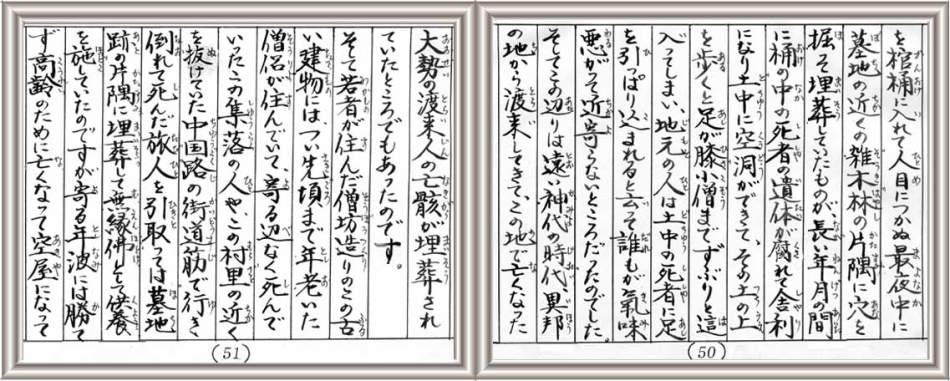 を棺桶に入れて人目につかぬ最夜中に
墓地の近くの雑木林の片隅に穴を
掘って埋葬していたものが、長い年月の間
に桶の中の死者の遺体が腐れて舎利
になり土中に空洞ができて、その土の上
を歩くと足が膝小僧までずぶりと這
入ってしまい、地元の人は土中の死者に足
を引っぱり込まれると云って誰もが氣味
悪がって近寄らないところだったのでした。
そしてこの辺りは遠い神代の時代、異邦
の地から渡来してきて、この地で亡くなった
(50)
大勢の渡来人の亡骸が埋葬され
ていたところでもあったのです。
そして若者が住んだ僧坊造りのこの古
い建物には、つい先頃まで年老いた
僧侶が住んでいて、寄る辺なく死んで
いったこの集落の人や、この村里の近く
を抜けていた中国路の街道筋で行き
倒れて死んだ旅人を引取っては墓地
跡の片隅に埋葬して無縁佛として供養
を施していたのですが寄る年波には勝て
ず高齢のために亡くなって空屋になって
(51)